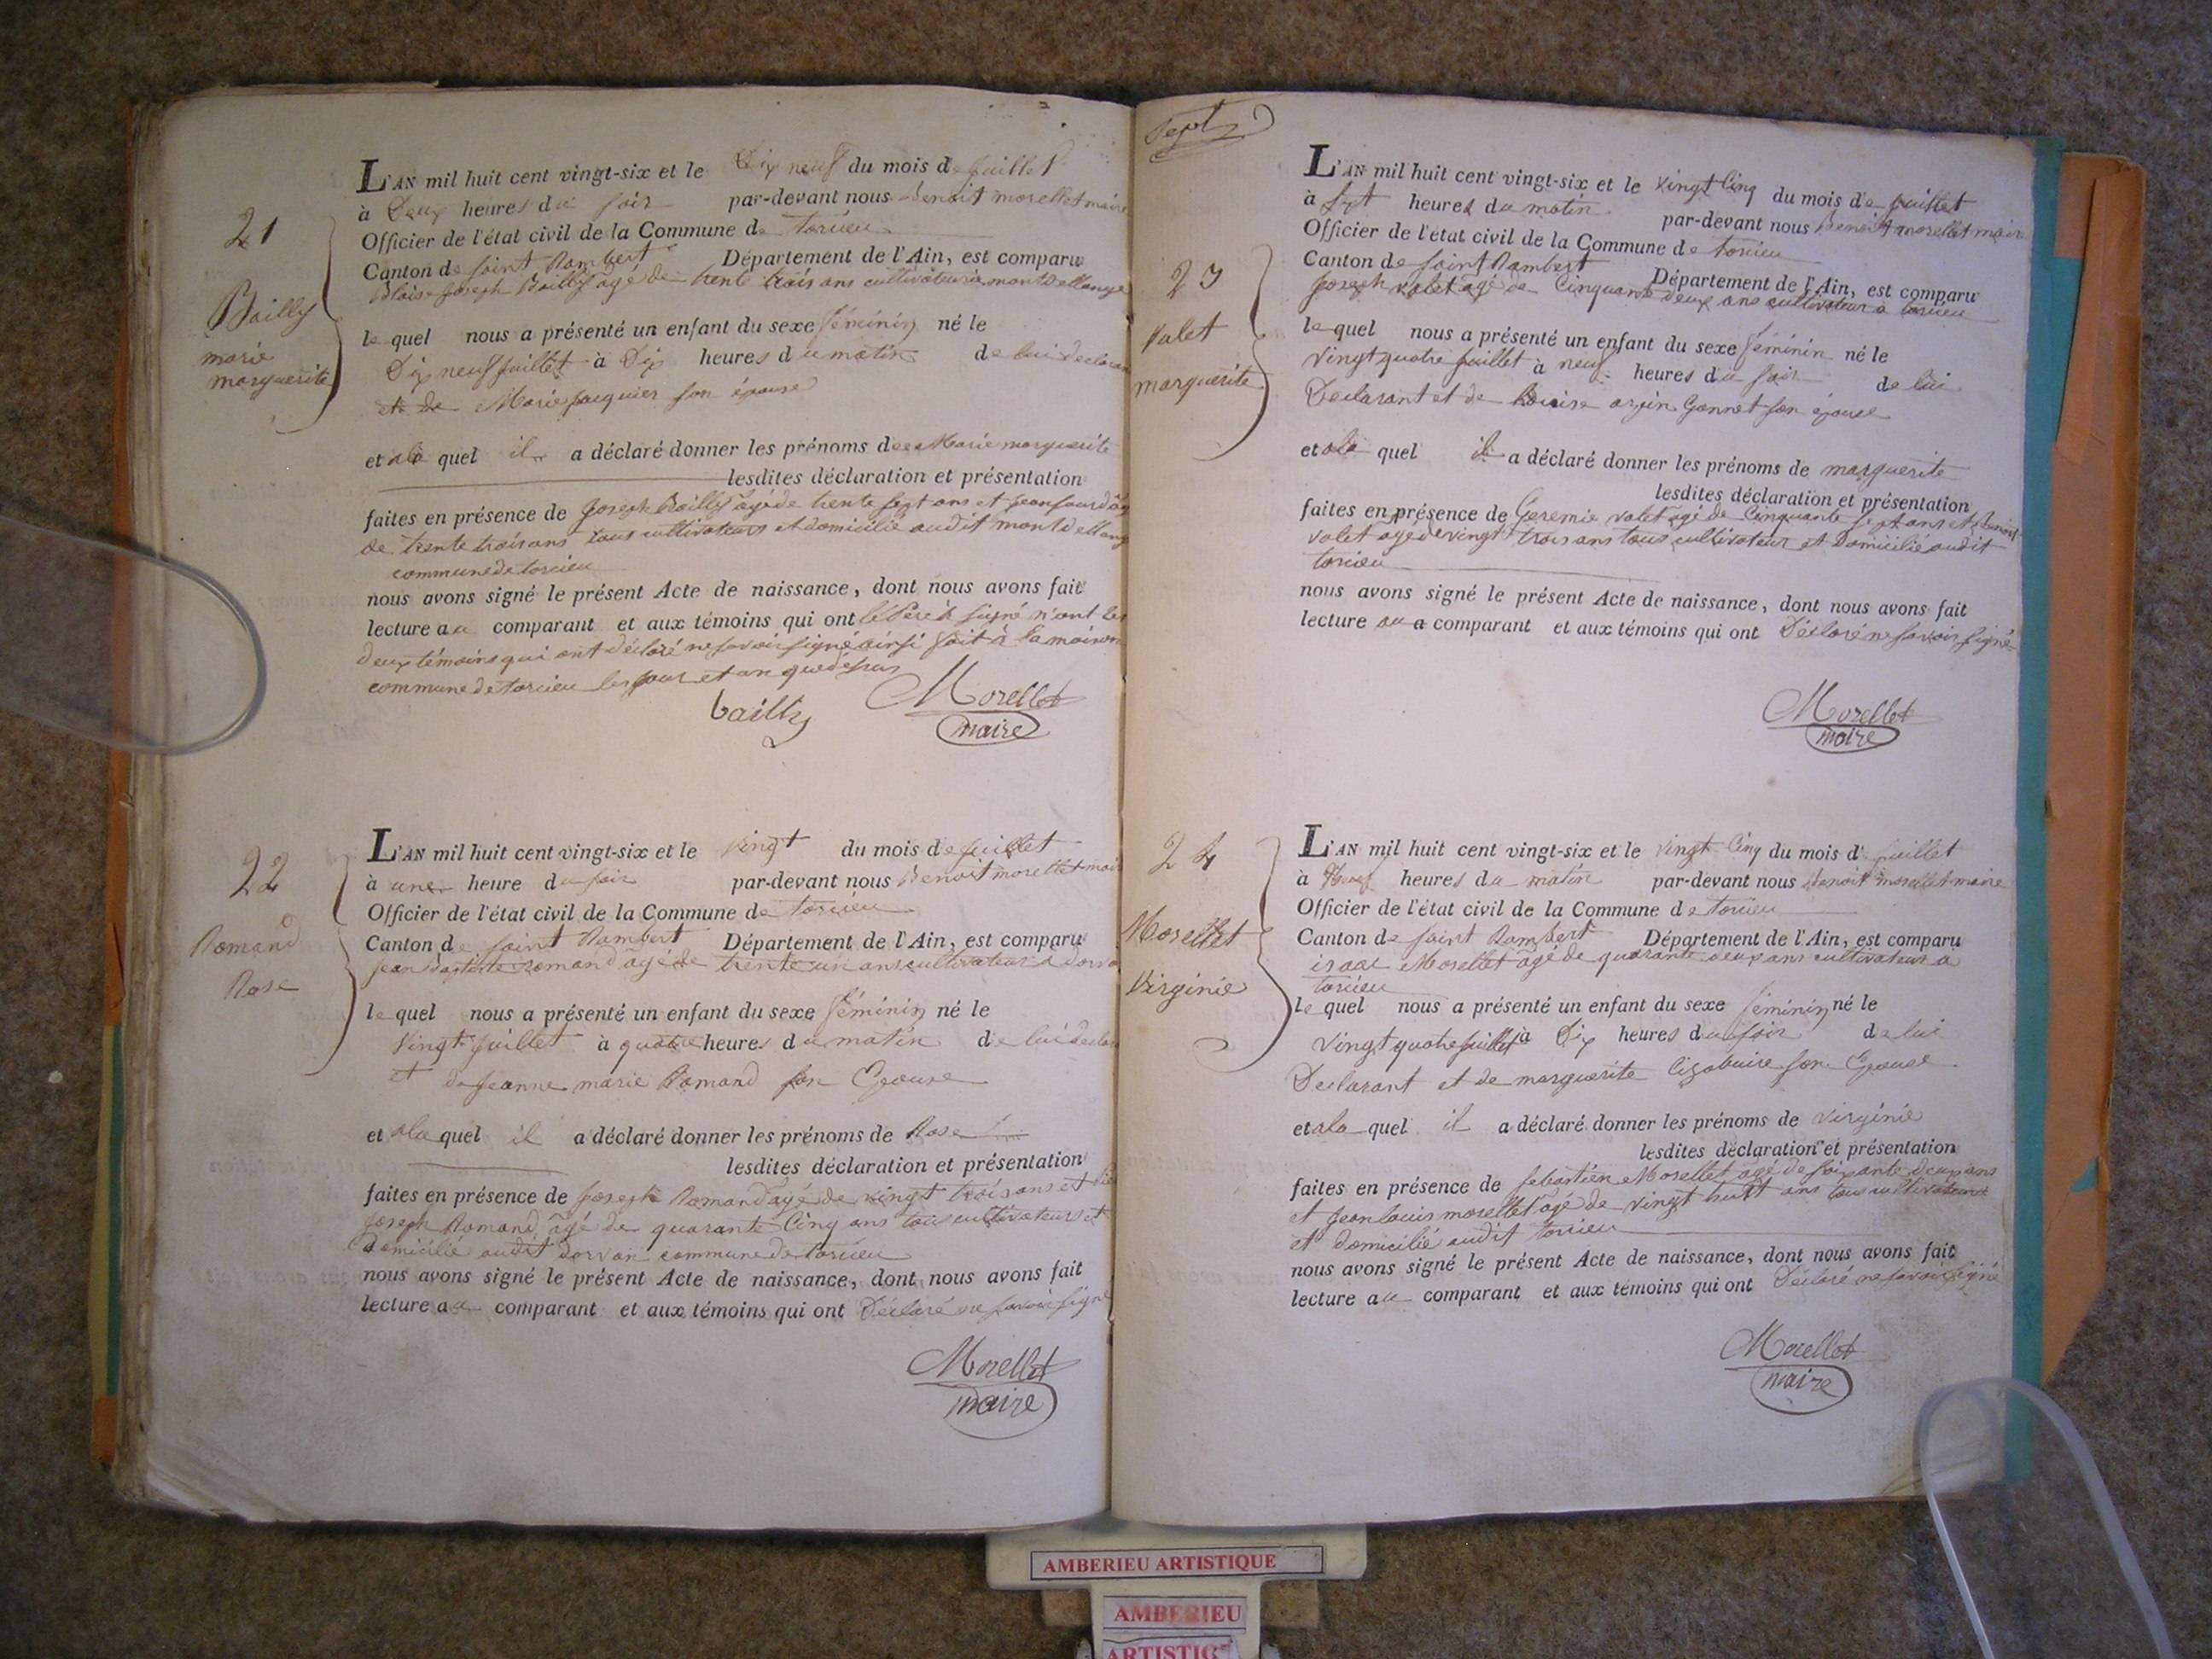 21
Bailly
marie
marguerite
L'AN mil huit cent vingt-six et le Dix neuf du mois de juillet
à Deux heures du soir par-devant nous Benoit morellet maire
Officier de l'état civil de la Commune de torcieu
Canton de saint Rambert Département de l'Ain, est comparu
Blaise Joseph Bailly agé de trente trois ans cultivateur à
le quel nous a présenté un enfant du sexe féminin né le
Dix neuf juillet à Dix heures du matin de lui
et de Marie jacquier son épouse
et ala quel il a déclaré donner les prénoms de Marie marguerite
lesdites déclaration et présentation
faites en présence de Joseph Bailly agé de trente sept ans et jean
de trente trois ans tous cultivateurs et domicilié audit
commune de torcieu
nous avons signé le présent Acte de naissance, dont nous avons fait
lecture au comparant et aux témoins qui ont le Père à signé n'ont les
deux témoins qui ont déclaré ne savoir signé ainsi fait à la maison
commune de torcieu les jour et an que dessus
bailly Morellet
maire
22
Romand
Rose
L'AN mil huit cent vingt-six et le vingt du mois de juillet
à une heure du soir par-devant nous Benoit morellet
Officier de l'état civil de la Commune de torcieu
Canton de saint Rambert Département de l'Ain, est comparu
jean Baptiste romand agé de trente un ans cultivateur à
le quel nous a présenté un enfant du sexe féminin né le
Vingt juillet à quatre heures du matin de lui
et de jeanne marie Romand son Epouse
et ala quel il a déclaré donner les prénoms de Rose
lesdites déclaration et présentation
faites en présence de Joseph Romand âgé de vingt trois ans et
joseph Romand âgé de quarante Cinq ans tous cultivateurs et
Domicilié audit dorvan commune de torcieu
nous avons signé le présent Acte de naissance, dont nous avons fait
lecture au comparant et aux témoins qui ont Déclaré ne savoir signé
Morellet
maire
Sept
23
Valet
marguerite
L'AN mil huit cent vingt-six et le vingt Cinq du mois de juillet
à sept heures du matin par-devant nous Benoit morellet maire
Officier de l'état civil de la Commune de torcieu
Canton de saint Rambert Département de l'Ain, est comparu
Joseph valet agé de Cinquante deux ans cultivateur à torcieu
le quel nous a présenté un enfant du sexe féminin né le
vingt quatre juillet à neuf heures du soir de lui
Declarant et de son épouse
et ala quel il a déclaré donner les prénoms de marguerite
lesdites déclaration et présentation
faites en présence de Geremie valet agé de Cinquante sept ans et Benoit
valet agé de vingt trois ans tous cultivateur et Domicilié audit
torcieu
nous avons signé le présent Acte de naissance, dont nous avons fait
lecture au comparant et aux témoins qui ont Déclaré ne savoir signé
Morellet
maire
24
Morellet
Virginie
L'AN mil huit cent vingt-six et le vingt Cinq du mois de juillet
à heures du matin par-devant nous Benoit morellet maire
Officier de l'état civil de la Commune de torcieu
Canton de saint Rambert Département de l'Ain, est comparu
isaac Morellet âgé de quarante deux ans cultivateur a
torcieu
le quel nous a présenté un enfant du sexe féminin né le
vingt quatre juillet à Dix heures du soir de lui
Declarant et de marguerite son Epouse
et ala quel il a déclaré donner les prénoms de virginie
lesdites déclaration et présentation
faites en présence de sebastien Morellet agé de soixante deux ans
et jean louis morellet agé de vingt huit ans tous cultivateurs
et domicilié audit torcieu
nous avons signé le présent Acte de naissance, dont nous avons fait
lecture au comparant et aux témoins qui ont Déclaré ne savoir signé
Morellet
maire
AMBERIEU ARTISTIQUE
AMBERIEU